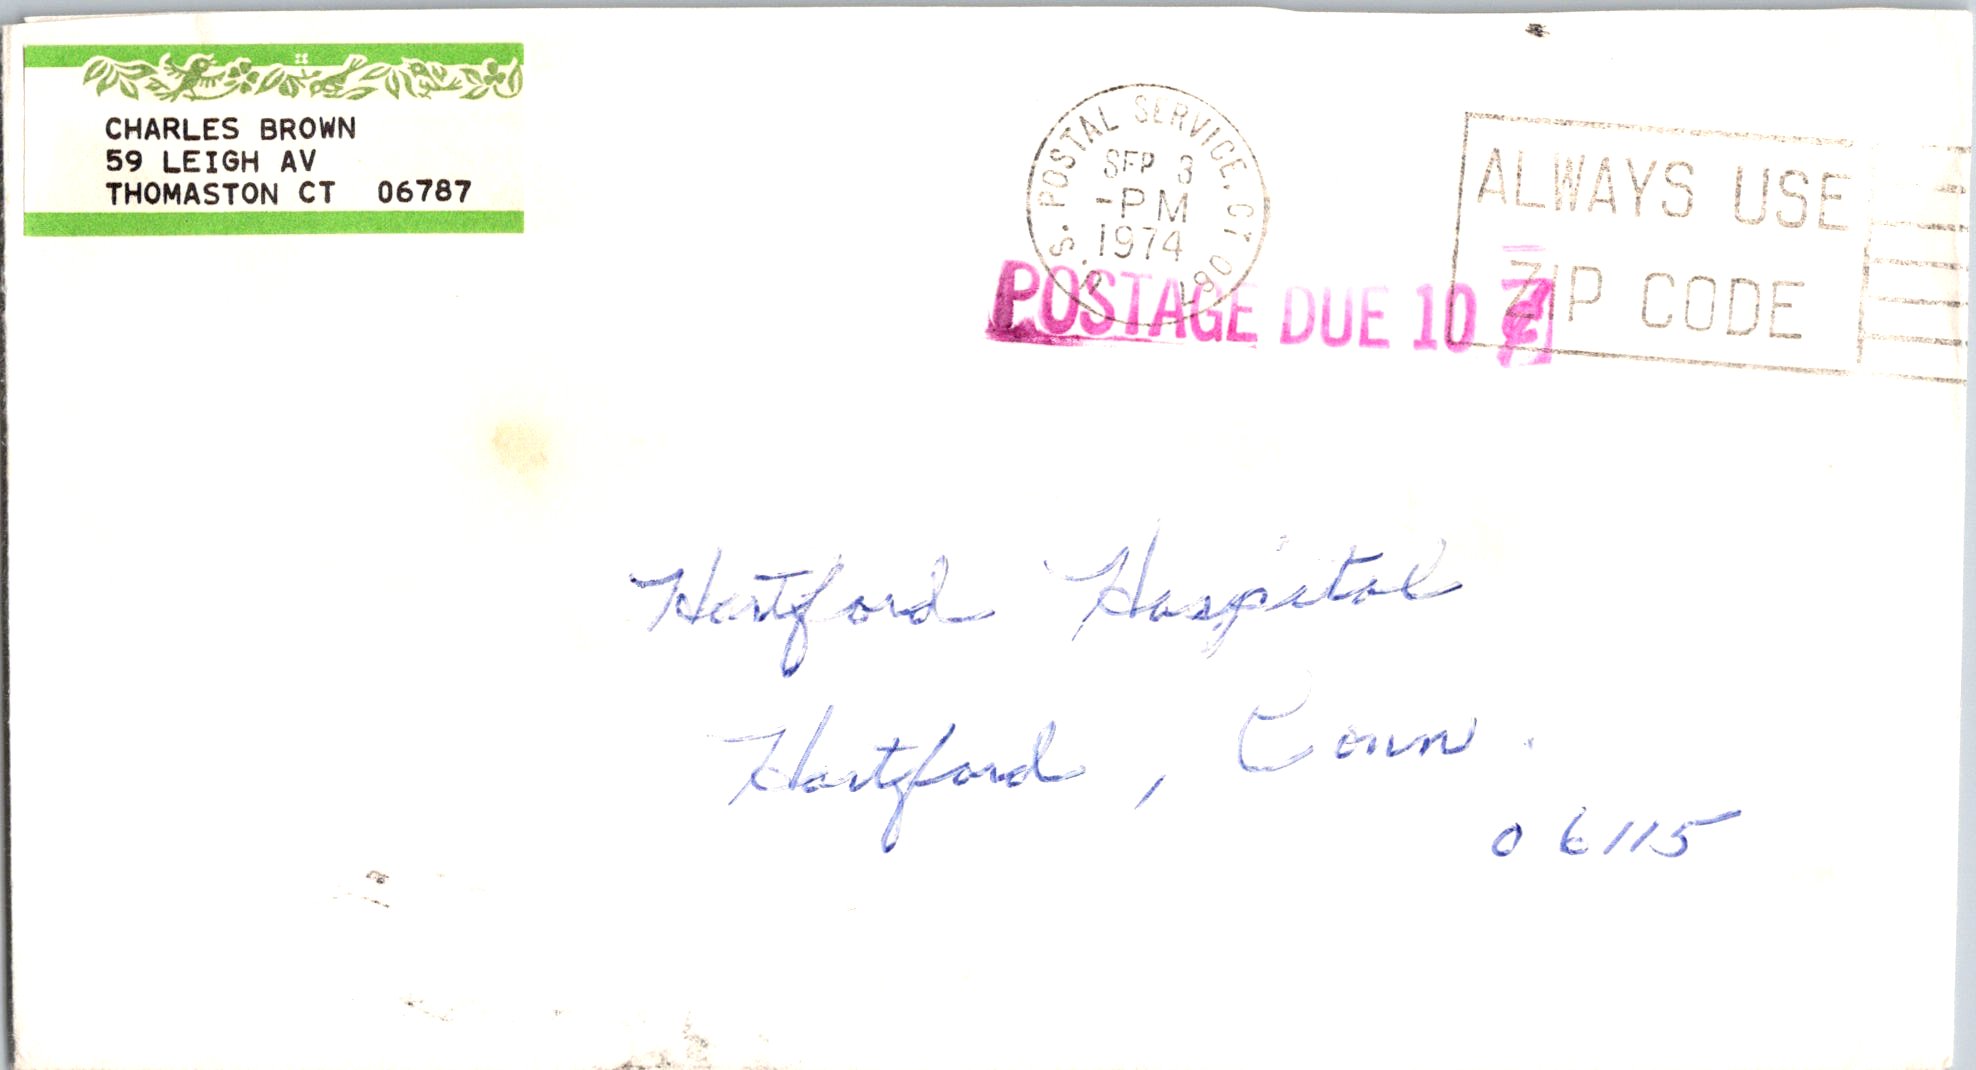 CHARLES BROWN
59 LEIGH AV
THOMASTON CT 06787
U.S. POSTAL SERVICE, CT 06
SEP 3
-PM
1974
ALWAYS USE
ZIP CODE
POSTAGE DUE 10 ¢
Hartford Hospital
Hartford, Conn.
06115